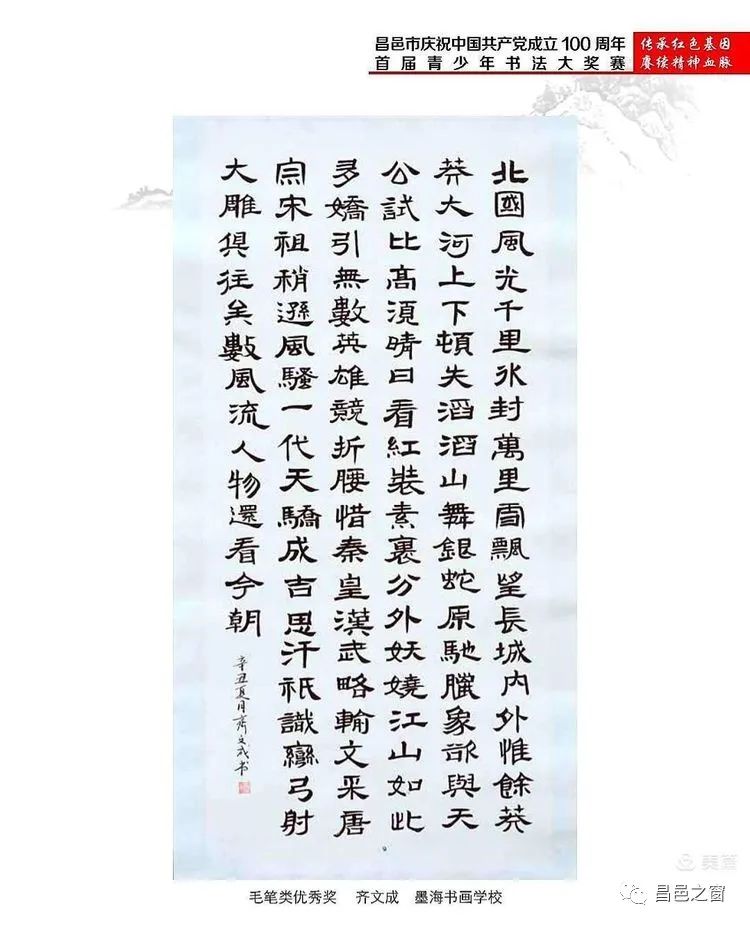 昌邑市庆祝中国共产党成立100周年
首届青少年书法大奖赛
传承红色基因
赓续精神血脉
北國風光千里氷封萬里雪飄望長城内外惟餘莽
莽大河上下頓失滔滔山舞銀蛇原馳臘象欲與天
公試比高須晴日看紅裝素裹分外妖嬈江山如此
多嬌引無數英雄競折腰惜秦皇漢武略輸文采唐
宗宋祖稍遜風騷一代天驕成吉思汗祇識彎弓射
大雕俱往矣數風流人物還看今朝
辛丑夏月齊文成书
毛笔类优秀奖 齐文成 墨海书画学校
美篇
昌邑之窗